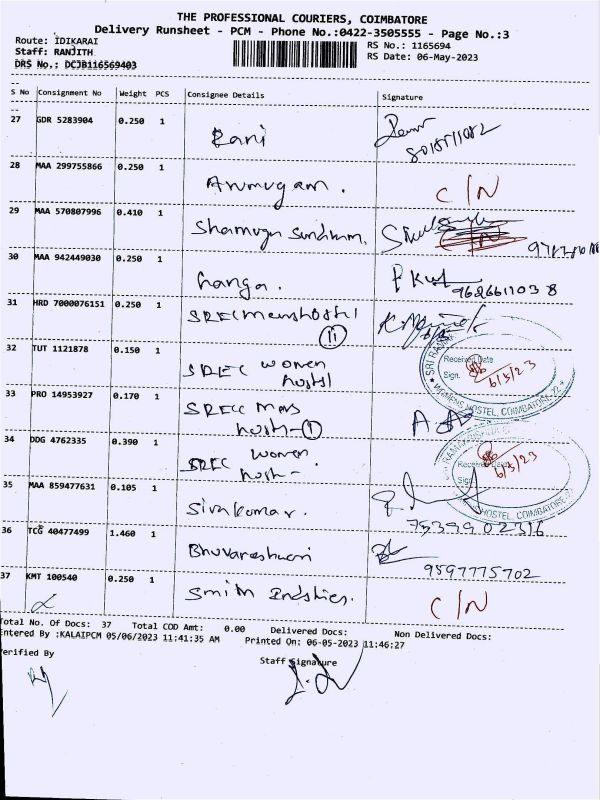 THE PROFESSIONAL COURIERS, COIMBATORE
Delivery Runsheet - PCM - Phone No.:0422-3505555 - Page No.:3
Route: IDIKARAI
RS No.: 1165694
Staff: RANJITH
RS Date: 06-May-2023
DRS No.: DCJB116569403
S No Consignment No Weight PCS Consignee Details Signature
27 GDR 5283904 0.250 1 Rani
28 MAA 299755866 0.250 1 Arumugam. C/N
29 MAA 570807996 0.410 1 Shamugu Sundram.
30 MAA 942449030 0.250 1 Ganga. 9626611038
31 HRD 7000076151 0.250 1 SREC menshostel
(ii)
32 TUT 1121878 0.150 1 SREC women
hostel
Received Date
Sign. 6/5/23
WOMENS HOSTEL, COIMBATORE-22
33 PRO 14953927 0.170 1 SREC Mens
host-(1)
34 DDG 4762335 0.390 1 SREC women
host-
Received Date
Sign. 6/5/23
HOSTEL, COIMBATORE-22
35 MAA 859477631 0.105 1 Sivakumar.
7539902316
36 TCG 40477499 1.460 1 Bhuvaneshwari
9597775702
37 KMT 100540 0.250 1 Smith Indstries. C/N
Total No. Of Docs: 37 Total COD Amt: 0.00 Delivered Docs: Non Delivered Docs:
Entered By :KALAIPCM 05/06/2023 11:41:35 AM Printed On: 06-05-2023 11:46:27
Verified By
Staff Signature